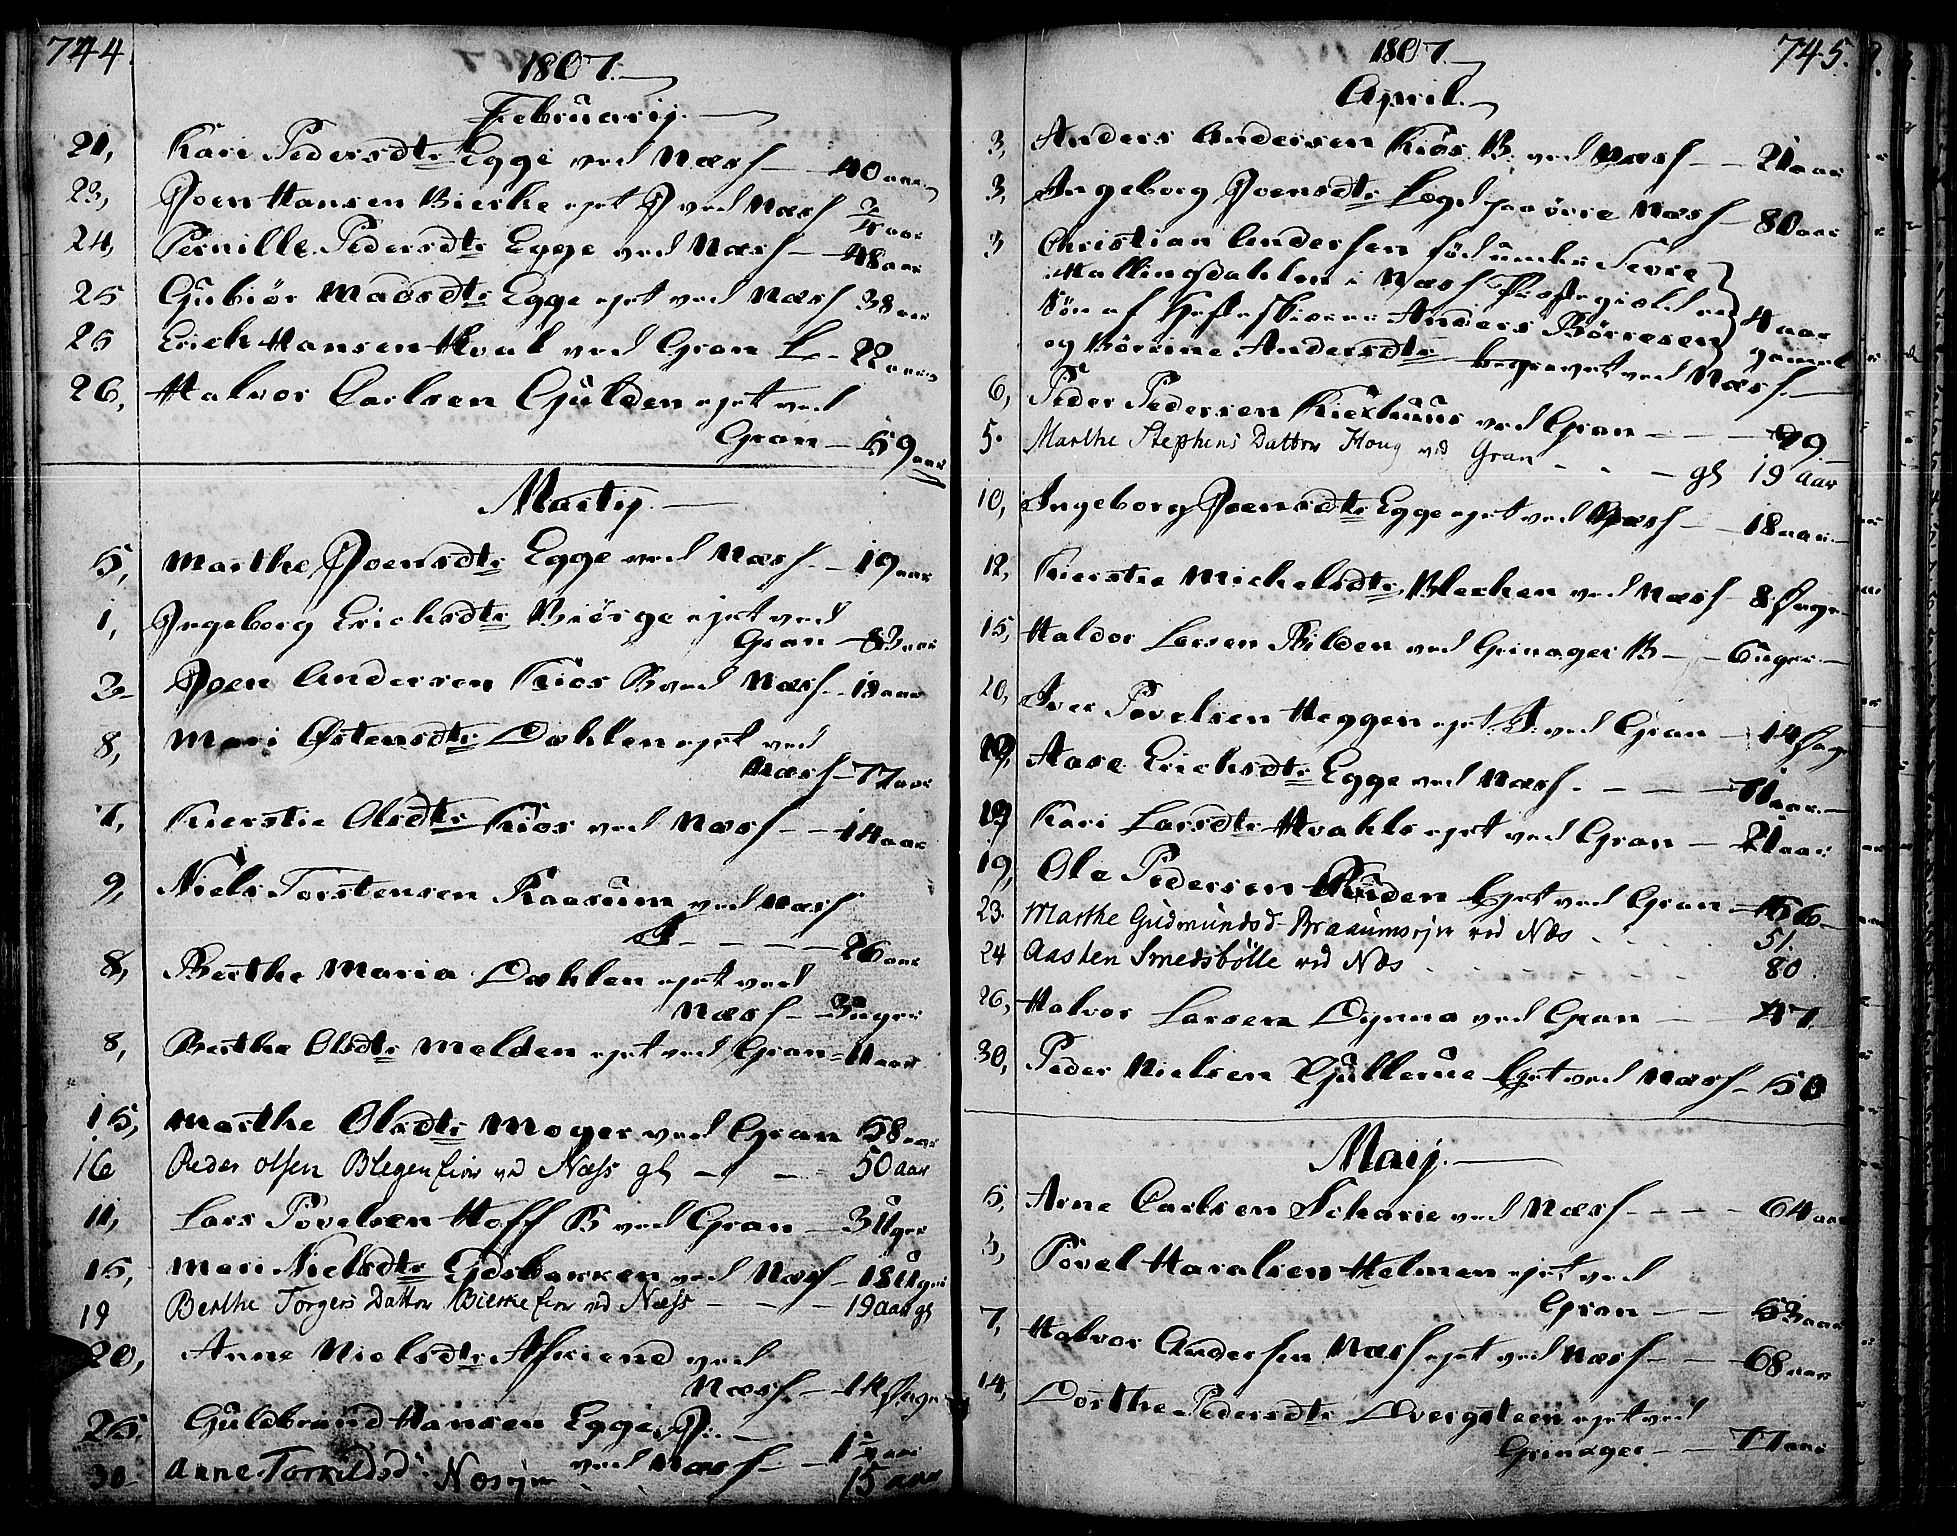 744.
1807.
Februarij.
21, Kari Pedersdtr Egge ved Næss — 40 aar
23, Joen Hansen Bierke ejet J ved Næss
24, Pernille Pedersdtr Egge ved Næss — 48 aar
25 Gubiør Madsdtr Egge ejet ved Næss 38 aar
25 Erich Hansen Hval ved Gran L — 22 aar
26, Halvor Carlsen Gulden ejet ved
Gran — 59 aar
Martij.
5, Marthe Joensdtr Egge ved Næss — 19 aar
1, Ingeborg Erichsdtr Biørge ejet ved
Gran — 83 aar
2 Joen Andersen Kios B ved Næss — 19 aar
8, Mari Østensdtr Dahlen ejet ved
Næss — 77 aar
7, Kierstie Olsdtr Kios ved Næss — 14 aar
9, Niels Torstensen Raasum ved Næss
J — — — — 26 aar
8, Berthe Maria Dahlen ejet ved
Næss — 3 uger
8, Berthe Olsdtr Melden ejet ved Gran — 11 aar
15, Marthe Olsdtr Moger ved Gran 58 aar
16 Peder Olsen Blegen Eier ved Næss gl — — 50 aar
11, Lars Povelsen Hoff B ved Gran — 3 Uger
15, Mari Nielsdtr Egsbakken ved Næss — 18 Uger
19 Berthe Torgers Datter Bierke Eier ved Næss — — 19 aar gl
20, Anne Nielsdtr Askiend ved
Næss — 14 Dage
25, Guldbrand Hansen Egge J. —
ved Næss — 1 1/2 aar
30 Anne Torkildsd. Næsejer 15 aar
745.
1807.
April.
3, Anders Andersen Kiøs B. ved Næss — 21 aar
3, Ingeborg Joensdtr Lægd paa øvre Næss — 80 aar
3 Christian Andersen fød under Sevre
Hallingdahlen i Næss Præstegield en
Søn af Anders Børresen 4 aar
og Børrine Andersdtr begravet ved Næss. gammel
6, Peder Pedersen Kiexhuus ved Gran — — — 79
5. Marthe Stephens Datter Houg ved Gran — — gl 19 Aar
10, Ingeborg Joensdtr Egge ejet ved Næss — 18 aar
12, Kierstie Michelsdtr Blechen ved Næss — 8 Dage
15, Haldor Larsen Bilden ved Grinager B — — 6 uger
20, Iver Povelsen Heggen ejet J. ved Gran — 14 Dage
19, Aase Erichsdtr Egge ved Næss. — — — 71 aar
19 Kari Larsdtr Hvahls ejet ved Gran — 21 aar
19, Ole Pedersen Ruden Ejet ved Gran — 56
23. Marthe Gudmundsd Braaumsejer ved Næs 51.
24 Aasten Smedsbølle ved Næs 80.
26, Halvor Larsen Dynna ved Gran — 47
30, Peder Nielsen Gullerue Ejet ved Næss — 50
Maij.
5, Arne Carlsen Scharie ved Næss — — — 64 aar
5, Povel Haralsen Helmen ejet ved
Gran — — 53 aar
7, Halvor Andersen Næss ejet ved Næss — — 68 aar
14, Dorthe Pedersdtr Dvergsteen ejet ved
Grinager — — 77 aar